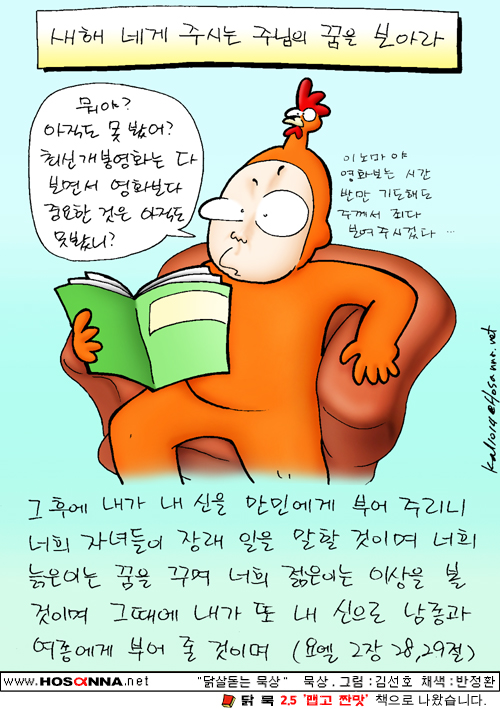 새해 네게 주시는 주님의 꿈을 보아라
뭐야?
아직도 못 봤어?
최신개봉영화는 다
보면서 영화보다
중요한 것은 아직도
못봤니?
이노마야
영화보는 시간
반만 기도해도
주께서 죄다
보여주시겠다...
kalio14@hosanna.net
그 후에 내가 내 신을 만민에게 부어 주리니
너희 자녀들이 장래 일을 말할 것이며 너희
늙은이는 꿈을 꾸며 너희 젊은이는 이상을 볼
것이며 그때에 내가 또 내 신으로 남종과
여종에게 부어 줄 것이며 (요엘 2장 28,29절)
www.HOSANNA.net "닭살돋는 묵상" 묵상.그림:김선호 채색:반정환
닭 묵 2.5 '맵고 짠맛' 책으로 나왔습니다.